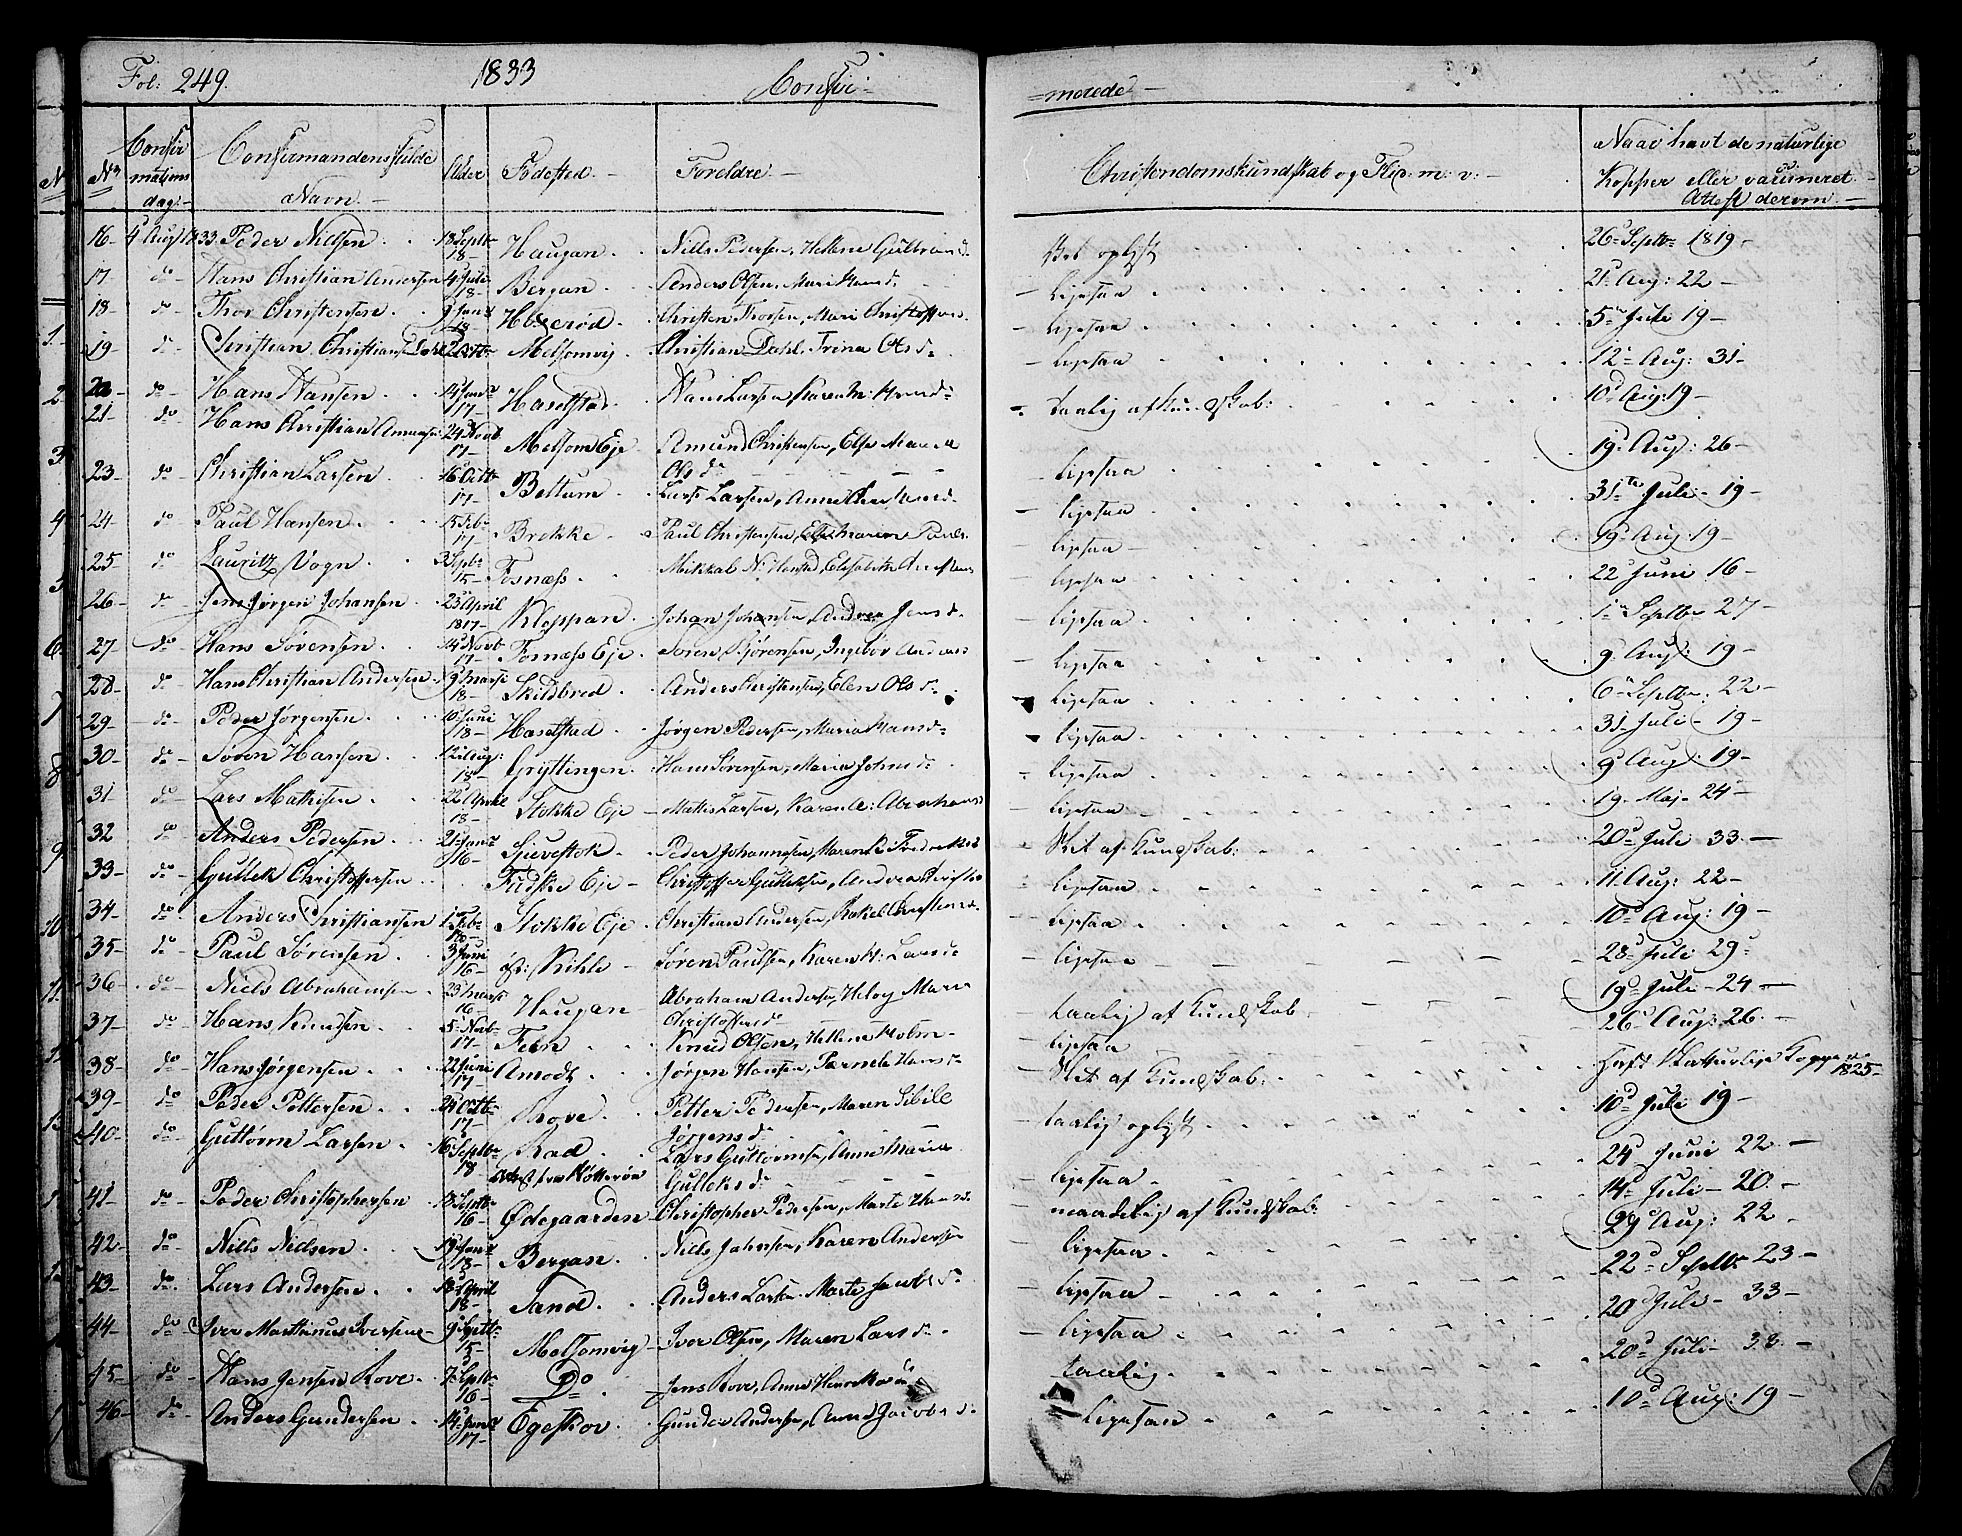 Fol: 249. 1833 Confir=
=merede
No Confirmationsdag. Confirmandens fulde Navn. Alder Fødested. Foreldre. Christendomskundskab og Flid m: v: Naar havt de naturlige Kopper eller vaccineret Attest derom.
16 4 Aug 1833 Peder Nielsen 18 Septb 18 Haugan Niels Pedersen, Hellene Gulbrandsd. oplyst 26 Septbr 1819
17 do Hans Christian Andersen 4 Juli 18 Bergan Anders Olsen, Mari Hansd. ligesaa 21 Aug: 22
18 do Thor Christensen 18 Christen Thorsen, Mari Christoffersen ligesaa 5 Juli 19
19 do Christian Christiansen Dahl Melsomvig Christian Dahl, Trina Olsd. ligesaa 12 Aug: 31
20 do Hans Hansen 14 Janr 17 Haselstad Hans Larsen, Karen M: Hansd. taalig af Kundskab: 10 Aug: 19
21 do Hans Christian Amunsen 24 Novb 17 Melsom Eje Amund Christensen, Else Maria Olsd. ligesaa 19 Aug: 26
23 do Christian Larsen 16 Octb 17 Bettum Lars Larsen, Anne Hansd. ligesaa 31te Juli 19
24 do Paul Hansen 15 Feb 17 Brekke Paul Christensen, Else Maren Pauls ligesaa 19 Aug 19
25 do Lauritz Vogn 3 Septb 15 Fosnæss Mikkal N: Elisabeth ligesaa 22 Juni 16
26 do Jens Jørgen Johansen 23 April 1817 Kleppan Johan Johansen, Andrea Jensd. ligesaa 1 Septbr 27
27 do Hans Sørensen 14 Novb 17 Fornæss Eje Søren Sjørensen, Ingebor Anders ligesaa 9 Aug: 19
28 do Hans Christian Andersen 9 Marts 18 Skildbred Anders Christensen, Elen Olsd. ligesaa 6 Septbr: 22
29 do Peder Jørgensen 10 Juni 18 Haselstad Jørgen Pedersen, Maria Hansd. ligesaa 31 Juli 19
30 do Søren Hansen 12 Aug: 18 Gryttingen Hans Sørensen, Maria Johnsd. ligesaa 9 Aug: 19
31 do Lars Mathisen 22 April 18 Stokke Eje Mathis Larsen, Karen A: Abrahamsd ligesaa 19 Maj 24
32 do Anders Pedersen 21 Janr 16 Sjuestok Peder Johannesen, Maren Fredriksd Slet af Kundskab: 20 Juli 33
33 do Gullik Christoffersen Fudske Eje Christoffer Gulliksen, Andrea ligesaa 11 Aug: 22
34 do Anders Christiansen 1 Feb 18 Stokke Eje Christian Andersen, Rakel Christensd. ligesaa 10 Aug: 19
35 do Paul Sørensen 3 Juni 16 øst: Kihle Søren Paulsen, Karen H: Larsd ligesaa 28 Juli 29
36 do Niels Abrahamsen 23 Marts 16 Haugan Abraham Andersen, Helvig Maria Christofersd. taalig af Kundskab 19 Juli 24
37 do Hans Knudsen 5 Novb 17 Feen Knud Olsen, Hellene Holm ligesaa 26 Aug: 26
38 do Hans Jørgensen 22 Juni 17 Amodt Jørgen Hansen, Pernele Hansd. Slet af Kundskab: Havt Naturlige Kopper 1825
39 do Peder Pettersen 24 Octb 17 Rove Petter Pedersen, Maren Sibile Jørgensd. taalig oplyst 10 Juli 19
40 do Guttorm Larsen 16 Septbr 18 Rad Lars Guttormsen, Anne Maria Gulleksd. ligesaa 24 Juni 22
41 do Peder Christophersen 18 Septb 16 Ødegaarden Christopher Pedersen, Marte Hansd. maadelig af Kundskab: 14 Juli 20
42 do Niels Nielsen 19 Janr 18 Bergan Niels Jahnsen, Karen Andersen ligesaa 29 Aug: 22
43 do Lars Andersen 18 April 18 Sand Anders Larsen, Marte Jacobsd. ligesaa 22 Septbr 23
44 do Iver Marthinus Iversen 9 15 Melsomvig Iver Olsen, Maren Larsd. ligesaa 20 Juli 33
45 do Hans Jensen Rove 7 Septb 16 Do Jens Rove, Anne taalig 20 Juli 33
46 do Anders Gundersen 14 Janr 17 Egeskov Gunder Andersen, Anne Jacobsd. ligesaa 10 Aug: 19